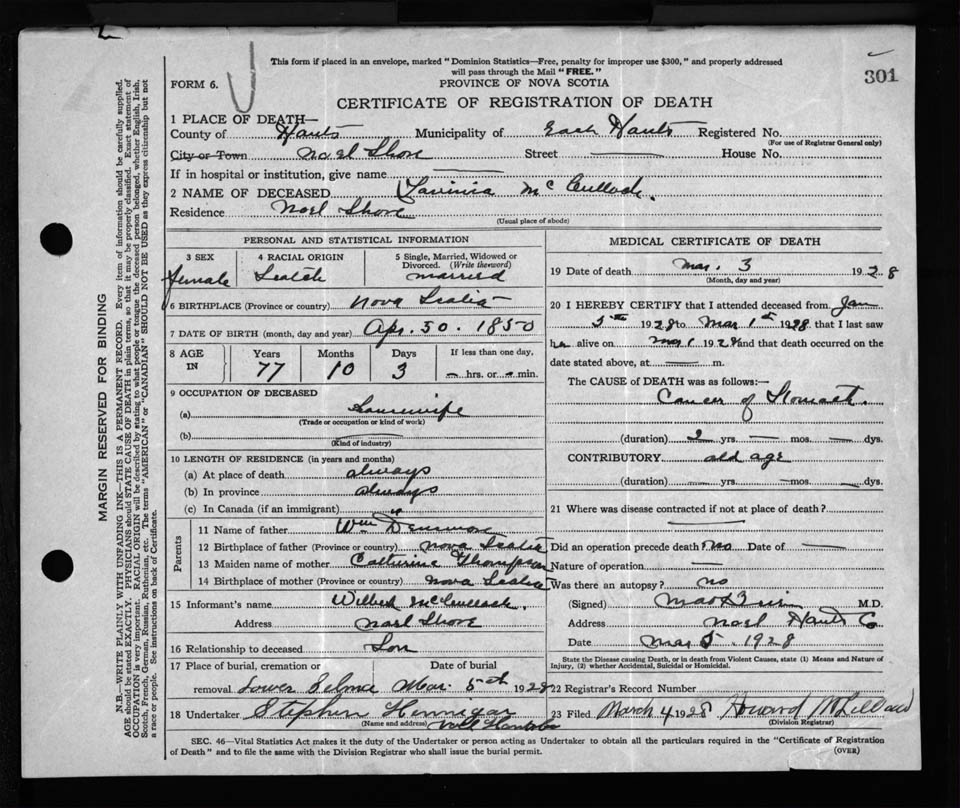 This form if placed in an envelope, marked "Dominion Statistics—Free, penalty for improper use $300," and properly addressed
will pass through the Mail "FREE."
301
FORM 6.
PROVINCE OF NOVA SCOTIA
CERTIFICATE OF REGISTRATION OF DEATH
1 PLACE OF DEATH—
County of Hants Municipality of East Hants Registered No.
(For use of Registrar General only)
City or Town Noel Shore Street — House No.
If in hospital or institution, give name —
2 NAME OF DECEASED Lavinia McCulloch.
Residence Noel Shore
(Usual place of abode)
PERSONAL AND STATISTICAL INFORMATION
3 SEX 4 RACIAL ORIGIN 5 Single, Married, Widowed or
Divorced. (Write the word)
female Scotch married
6 BIRTHPLACE (Province or country) Nova Scotia
7 DATE OF BIRTH (month, day and year) Apr. 30. 1850
8 AGE IN Years Months Days If less than one day,
77 10 3 — hrs. or — min.
9 OCCUPATION OF DECEASED
(a) Housewife
(Trade or occupation or kind of work)
(b) —
(Kind of industry)
10 LENGTH OF RESIDENCE (in years and months)
(a) At place of death always
(b) In province always
(c) In Canada (if an immigrant) "
Parents
11 Name of father Wm Densmore
12 Birthplace of father (Province or country) Nova Scotia
13 Maiden name of mother Catherine Thompson
14 Birthplace of mother (Province or country) Nova Scotia
15 Informant's name Wilbert McCulloch.
Address Noel Shore
16 Relationship to deceased Son
17 Place of burial, cremation or Date of burial
removal Lower Selma Mar. 5th 1928
18 Undertaker Stephen Hennigar
(Name and address) Noel Hants Co
MEDICAL CERTIFICATE OF DEATH
19 Date of death Mar. 3 1928
(Month, day and year)
20 I HEREBY CERTIFY that I attended deceased from Jan
5th 1928 to Mar 1st 1928 that I last saw
her alive on Mar 1 1928 and that death occurred on the
date stated above, at — m.
The CAUSE of DEATH was as follows:—
Cancer of Stomach.
(duration) 2 yrs. — mos. — dys.
CONTRIBUTORY old age
(duration) — yrs. — mos. — dys.
21 Where was disease contracted if not at place of death?
—
Did an operation precede death? No Date of —
Nature of operation —
Was there an autopsy? no
(Signed) M.D.
Address Noel Hants Co
Date Mar 5. 1928
State the Disease causing Death, or in death from Violent Causes, state (1) Means and Nature of
Injury, (2) whether Accidental, Suicidal or Homicidal.
22 Registrar's Record Number
23 Filed March 4 1928 Howard
(Division Registrar)
SEC. 46—Vital Statistics Act makes it the duty of the Undertaker or person acting as Undertaker to obtain all the particulars required in the "Certificate of Registration
of Death" and to file the same with the Division Registrar who shall issue the burial permit.
(OVER)
MARGIN RESERVED FOR BINDING
N.B.—WRITE PLAINLY WITH UNFADING INK—THIS IS A PERMANENT RECORD. Every item of information should be carefully supplied.
AGE should be stated EXACTLY. PHYSICIANS should STATE CAUSE OF DEATH in plain terms, so that it may be properly classified. Exact statement of
OCCUPATION is very important. RACIAL ORIGIN will be described by stating to what people or tongue the deceased person belonged, whether English, Irish,
Scotch, French, German, Russian, Ruthenian, etc. The terms "AMERICAN" or "CANADIAN" SHOULD NOT BE USED as they express citizenship but not
a race or people. See instructions on back of Certificate.